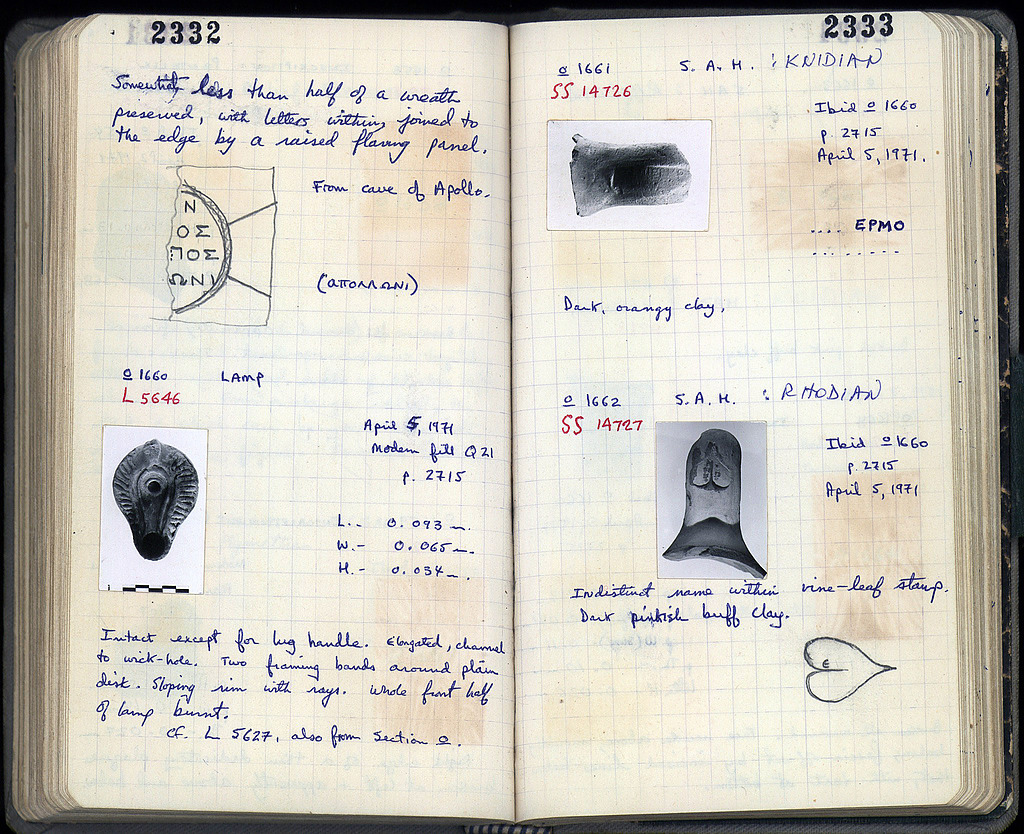 2332
Somewhat less than half of a wreath
preserved, with letters within, joined to
the edge by a raised flaring panel.
From cave of Apollo.
Ν
ΟΣ
ΠΟΣ
ΩΝΙ
(ΑΠΟΛΛΩΝΙ)
Ο 1660 LAMP
L 5646
April 5, 1971
Modern fill Q 21
p. 2715
L. - 0.093 m.
W. - 0.065 m.
H. - 0.034 m.
Intact except for lug handle. Elongated, channel
to wick-hole. Two framing bands around plain
disk. Sloping rim with rays. Whole front half
of lamp burnt.
Cf. L 5627, also from Section Ο.
2333
Ο 1661 S. A. H. : KNIDIAN
SS 14726
Ibid Ο 1660
p. 2715
April 5, 1971.
.... ΕΡΜΟ
........
Dark, orangy clay.
Ο 1662 S. A. H. : RHODIAN
SS 14727
Ibid Ο 1660
p. 2715
April 5, 1971
Indistinct name within vine-leaf stamp.
Dark pinkish buff clay.
Ε